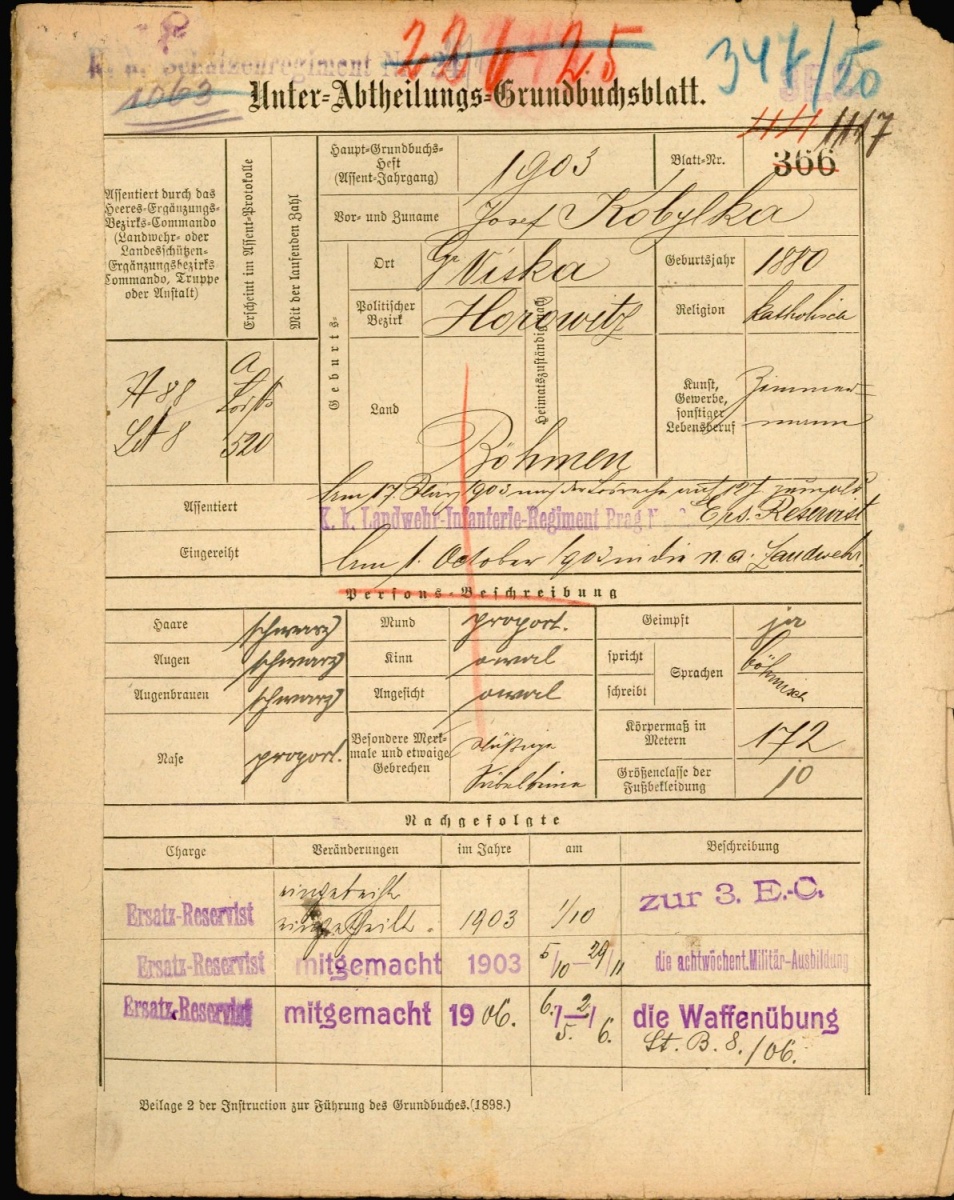 K. k. Schützenregiment Nr.
226 25
347/20
1063
Unter-Abtheilungs-Grundbuchsblatt.
1117
Assentiert durch das Heeres-Ergänzungs-Bezirks-Commando (Landwehr- oder Landesschützen-Ergänzungsbezirks Commando, Truppe oder Anstalt)
Erscheint im Assent-Protokolle
Mit der laufenden Zahl
Haupt-Grundbuchs-Heft (Assent-Jahrgang)
1903
Blatt-Nr.
366
Vor- und Zuname
Josef Kobylka
Geburts-
Ort
Gr Viska
Geburtsjahr
1880
Politischer Bezirk
Horowitz
Heimatszuständig nach
Religion
katholisch
Land
Böhmen
Kunst, Gewerbe, sonstiger Lebensberuf
Zimmer-
mann
A 88
Lit 8
a
520
Assentiert
Am 17. März 903 nach der Losreihe auf 12 J. zum
Ers. Reservist
K. k. Landwehr-Infanterie-Regiment Prag N
Eingereiht
Am 1. October 1903 in die n. a. Landwehr.
Persons-Beschreibung
Haare
schwarz
Mund
proport.
Geimpft
ja
Augen
schwarz
Kinn
oval
spricht
schreibt
Sprachen
böhmisch
Augenbrauen
schwarz
Angesicht
oval
Nase
proport.
Besondere Merk-
male und etwaige
Gebrechen
Säbelbeine
Körpermaß in Metern
172
Größenclasse der Fußbekleidung
10
Nachgefolgte
Charge
Veränderungen
im Jahre
am
Beschreibung
eingereiht
Ersatz-Reservist
eingetheilt.
1903
1/10
zur 3. E.-C.
Ersatz-Reservist
mitgemacht
1903
5/10–29/11
die achtwöchent. Militär-Ausbildung
Ersatz-Reservist
mitgemacht
1906.
6./5.–2/6.
die Waffenübung
St. B. 8./06.
Beilage 2 der Instruction zur Führung des Grundbuches. (1898.)